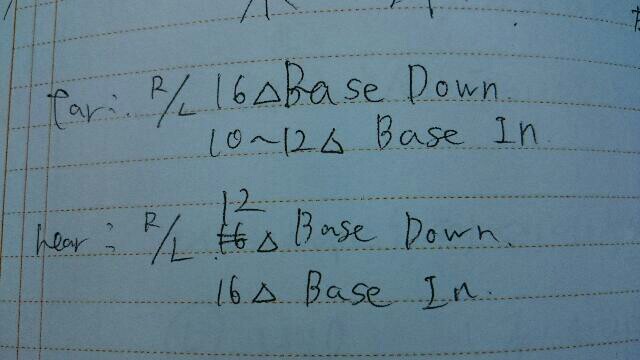 far: R/L 16△Base Down.
10~12△ Base In.
near: R/L 12△ Base Down.
16△ Base In.